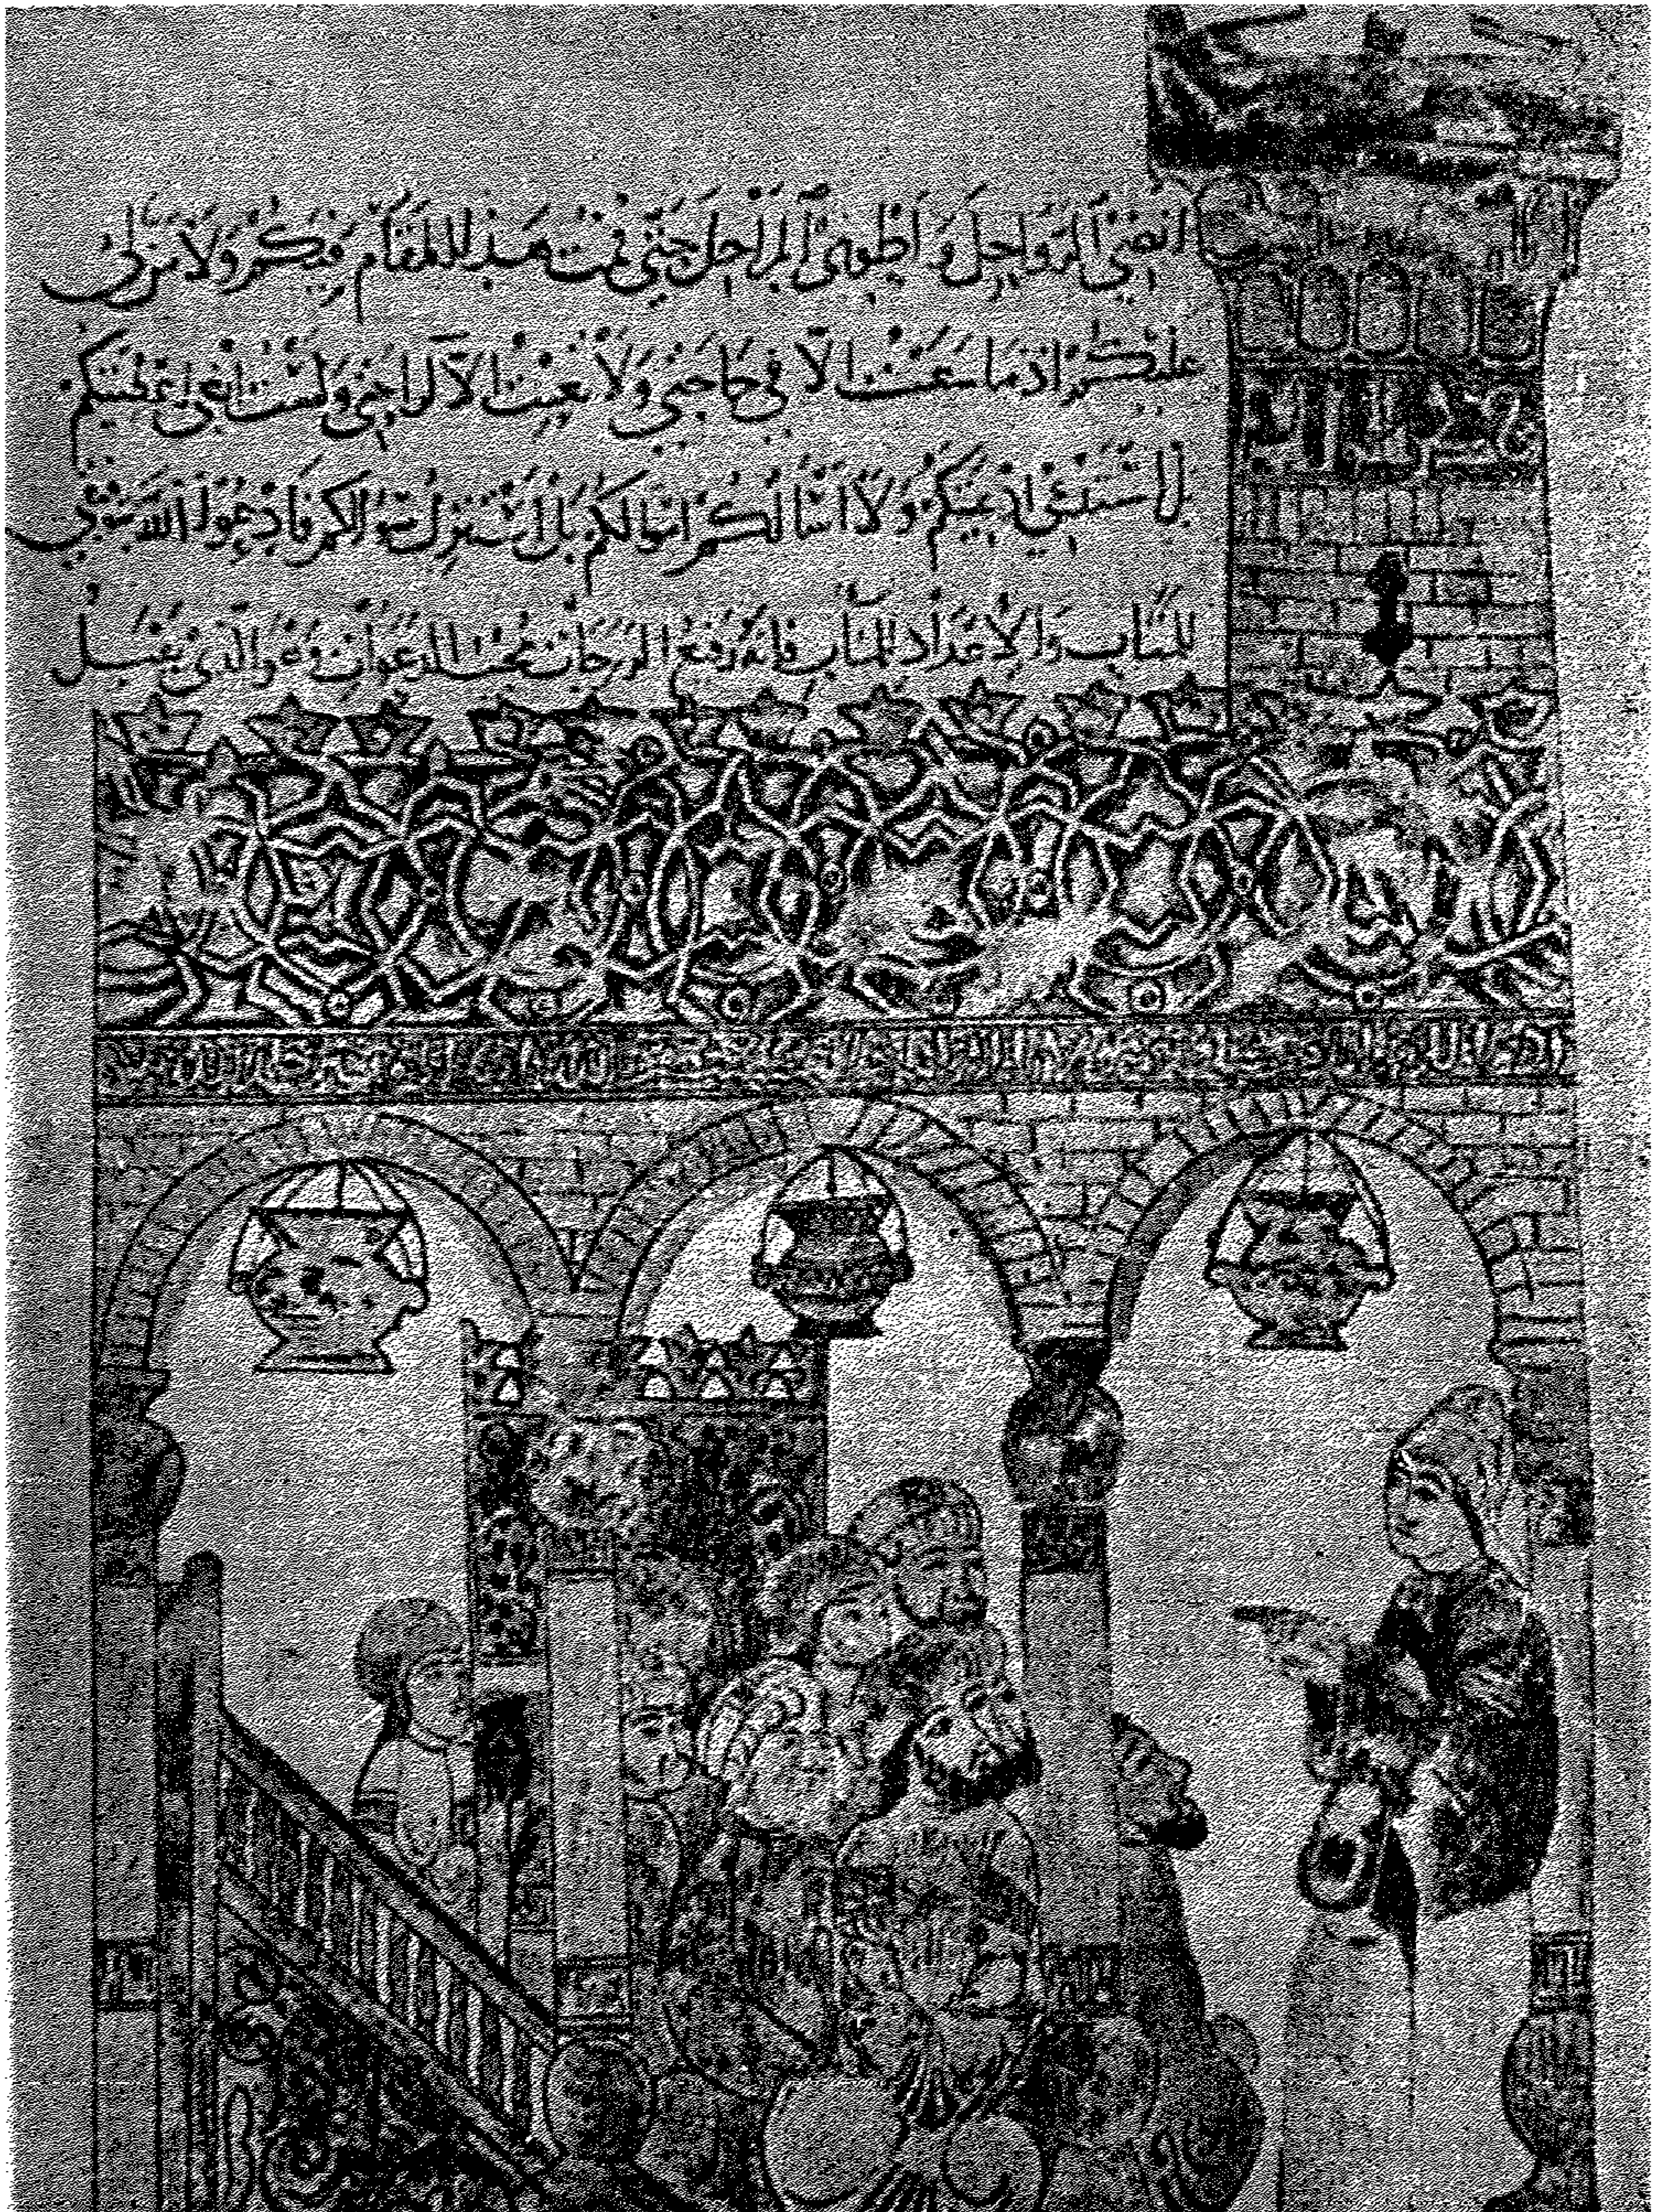 أنضي الرواحل وأطوي المراحل حتى قمت هذا المقام فيكم ولا من لي
عليكم إذ ما سعيت إلا في حاجتي ولا تعبت إلا لراحتي ولست أبغي أعطيتكم
بل أستدعي أدعيتكم ولا أسألكم أموالكم بل أستنزل سؤالكم فادعوا الله بتوفيقي
للمتاب والإعداد للمآب فإنه رفيع الدرجات مجيب الدعوات وهو الذي يقبل